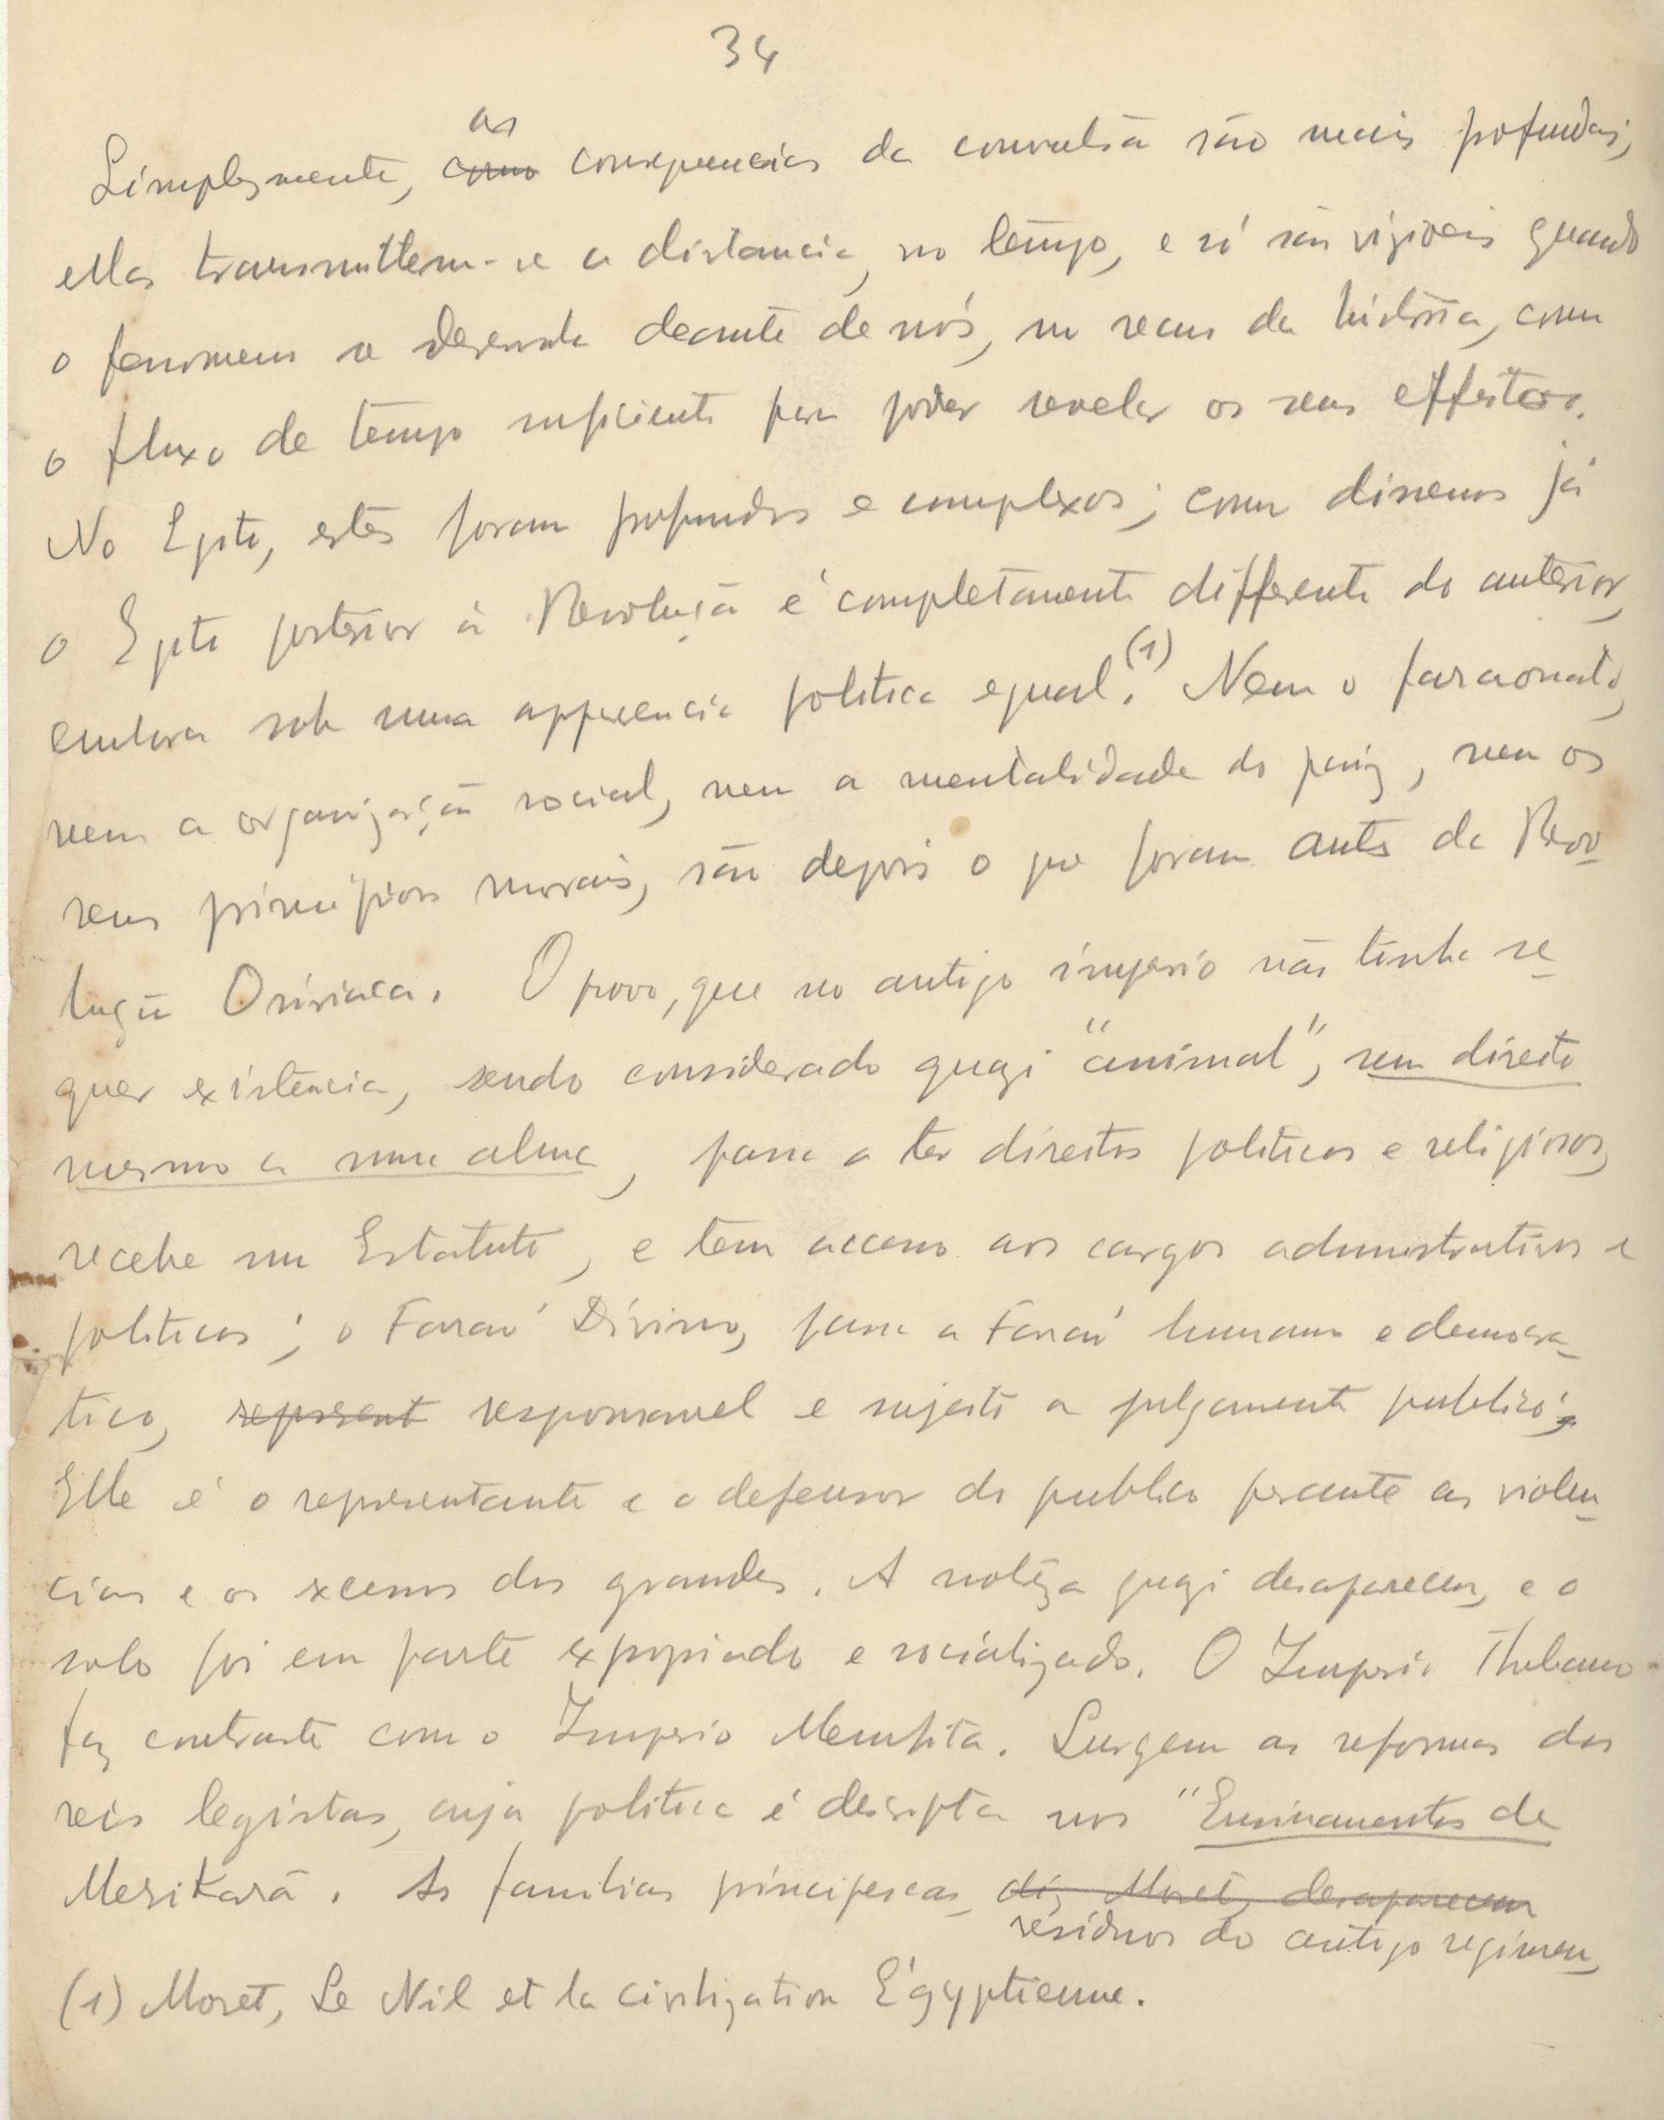 34
Simplesmente, as como consequencias da convulsão são mais profundas,
ellas transmittem-se a distancia, no tempo, e só são vizíveis quando
o fenomeno se desenrola deante de nós, no recuo da história, com
o fluxo de tempo suficiente para poder revelar os seus effeitos.
No Egito, estes foram profundos e complexos; como dissemos já
o Egito posterior á Revolução é completamente differente do anterior,
embora sob uma apparencia politica egual.(1) Nem o faraonato,
nem a organização social, nem a mentalidade do paiz, nem os
seus principios morais, são depois o que foram antes da Revo-
lução Osiriaca. O povo, que no antigo imperio não tinha se-
quer existencia, sendo considerado quazi "animal", sem direito
mesmo a uma alma, passa a ter direitos politicos e religiosos,
recebe um Estatuto, e tem accesso aos cargos administrativos e
politicos; o Faraó Divino, passa a Faraó humano e democra-
tico, represent responsavel e sujeito a julgamento publico;
Elle é o representante e o defensor do publico perante as violen-
cias e os excessos dos grandes. A nobreza quazi desapareceu, e o
solo foi em parte expropriado e socializado. O Imperio Thebano
faz contraste com o Imperio Memfita. Surgem as reformas dos
reis legistas, cuja politica é descripta nos "Ensinamentos de
Merikarâ. As familias principescas, diz Moret, desaparecem
residuos do antigo regimen,
(1) Moret, Le Nil et la civilization Égyptienne.